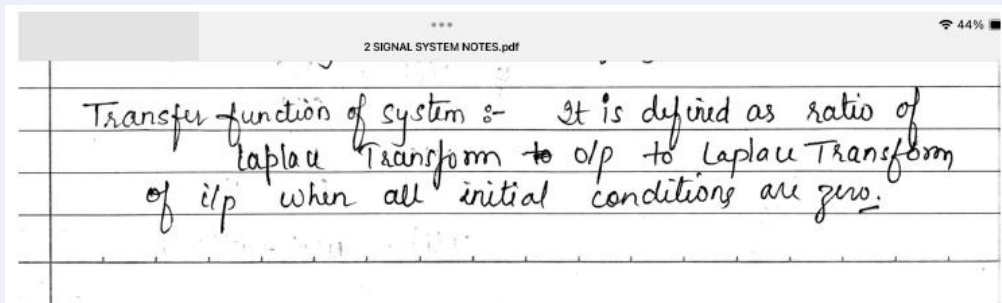 44%
2 SIGNAL SYSTEM NOTES.pdf
Transfer function of system :- It is defined as ratio of
Laplace Transform to o/p to Laplace Transform
of i/p when all initial conditions are zero.